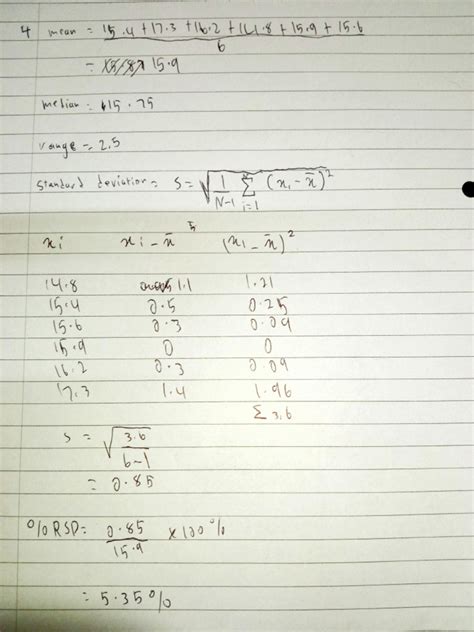 4 mean = 15.4 + 17.3 + 16.2 + 14.8 + 15.9 + 15.6
6
= 15.9
median = 15.75
range = 2.5
standard deviation = s = √ 1 Σ (xi - x̄)²
N-1 i=1
xi xi - x̄ (xi - x̄)²
14.8 1.1 1.21
15.4 0.5 0.25
15.6 0.3 0.09
15.9 0 0
16.2 0.3 0.09
17.3 1.4 1.96
Σ 3.6
s = √ 3.6
6-1
= 0.85
% RSD = 0.85 × 100 %
15.9
= 5.35 %